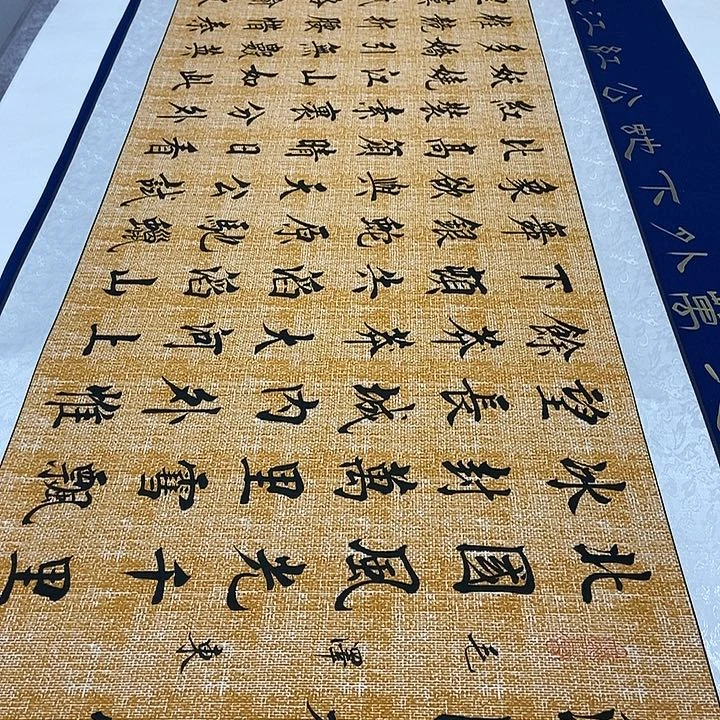 毛澤東
北國風光千里
冰封萬里雪飄
望長城内外惟
餘莽莽大河上
下頓失滔滔山
舞銀蛇原馳蠟
象欲與天公試
比高須晴日看
紅裝素裹分外
妖嬈江山如此
多嬌引無數英
雄競折腰惜秦